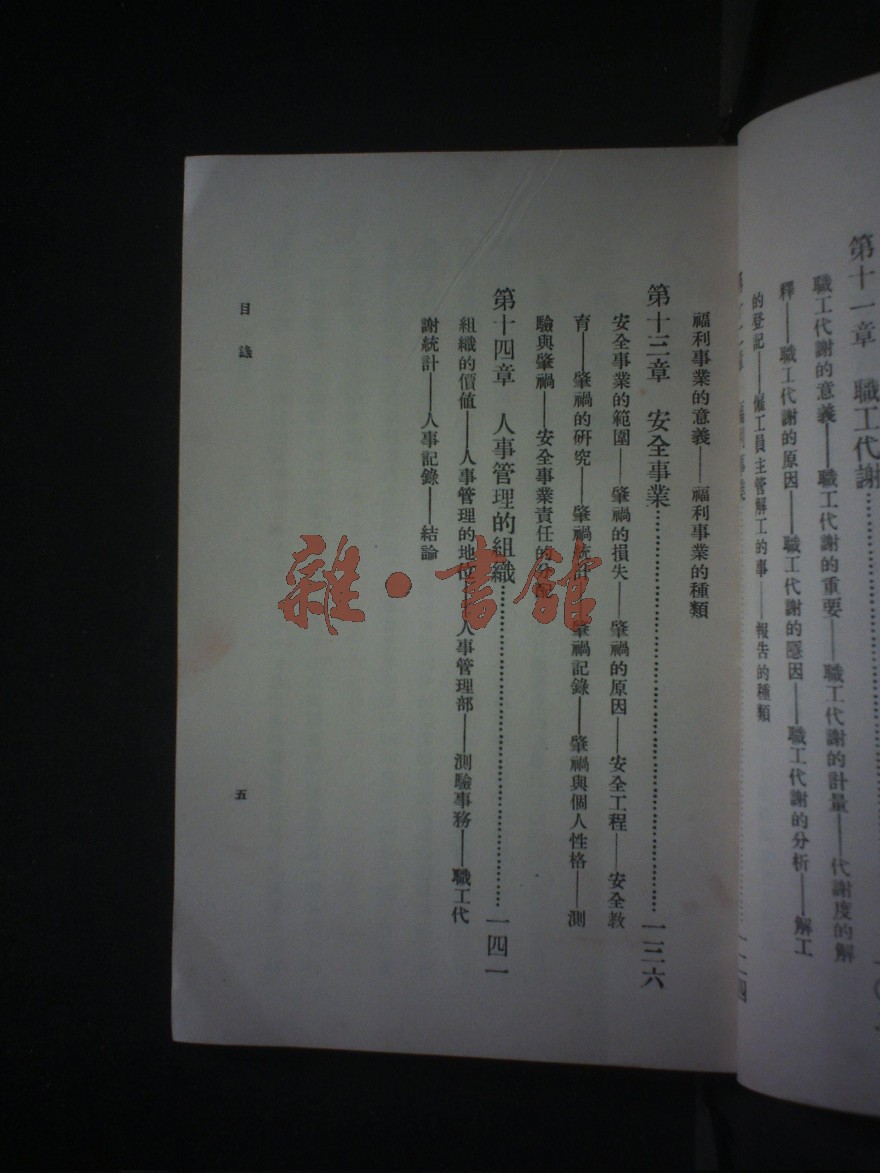 第十一章　職工代謝
職工代謝的意義——職工代謝的重要——職工代謝的計量——代謝度的解
釋——職工代謝的原因——職工代謝的隱因——職工代謝的分析——解工
的登記——僱工員主管解工的事——報告的種類
福利事業的意義——福利事業的種類
第十三章　安全事業……一三六
安全事業的範圍——肇禍的損失——肇禍的原因——安全工程——安全教
育——肇禍的研究——肇禍統計——肇禍記錄——肇禍與個人性格——測
驗與肇禍——安全事業責任的
第十四章　人事管理的組織……一四一
組織的價值——人事管理的地位——人事管理部——測驗事務——職工代
謝統計——人事記錄——結論
目錄
五
雜·書館